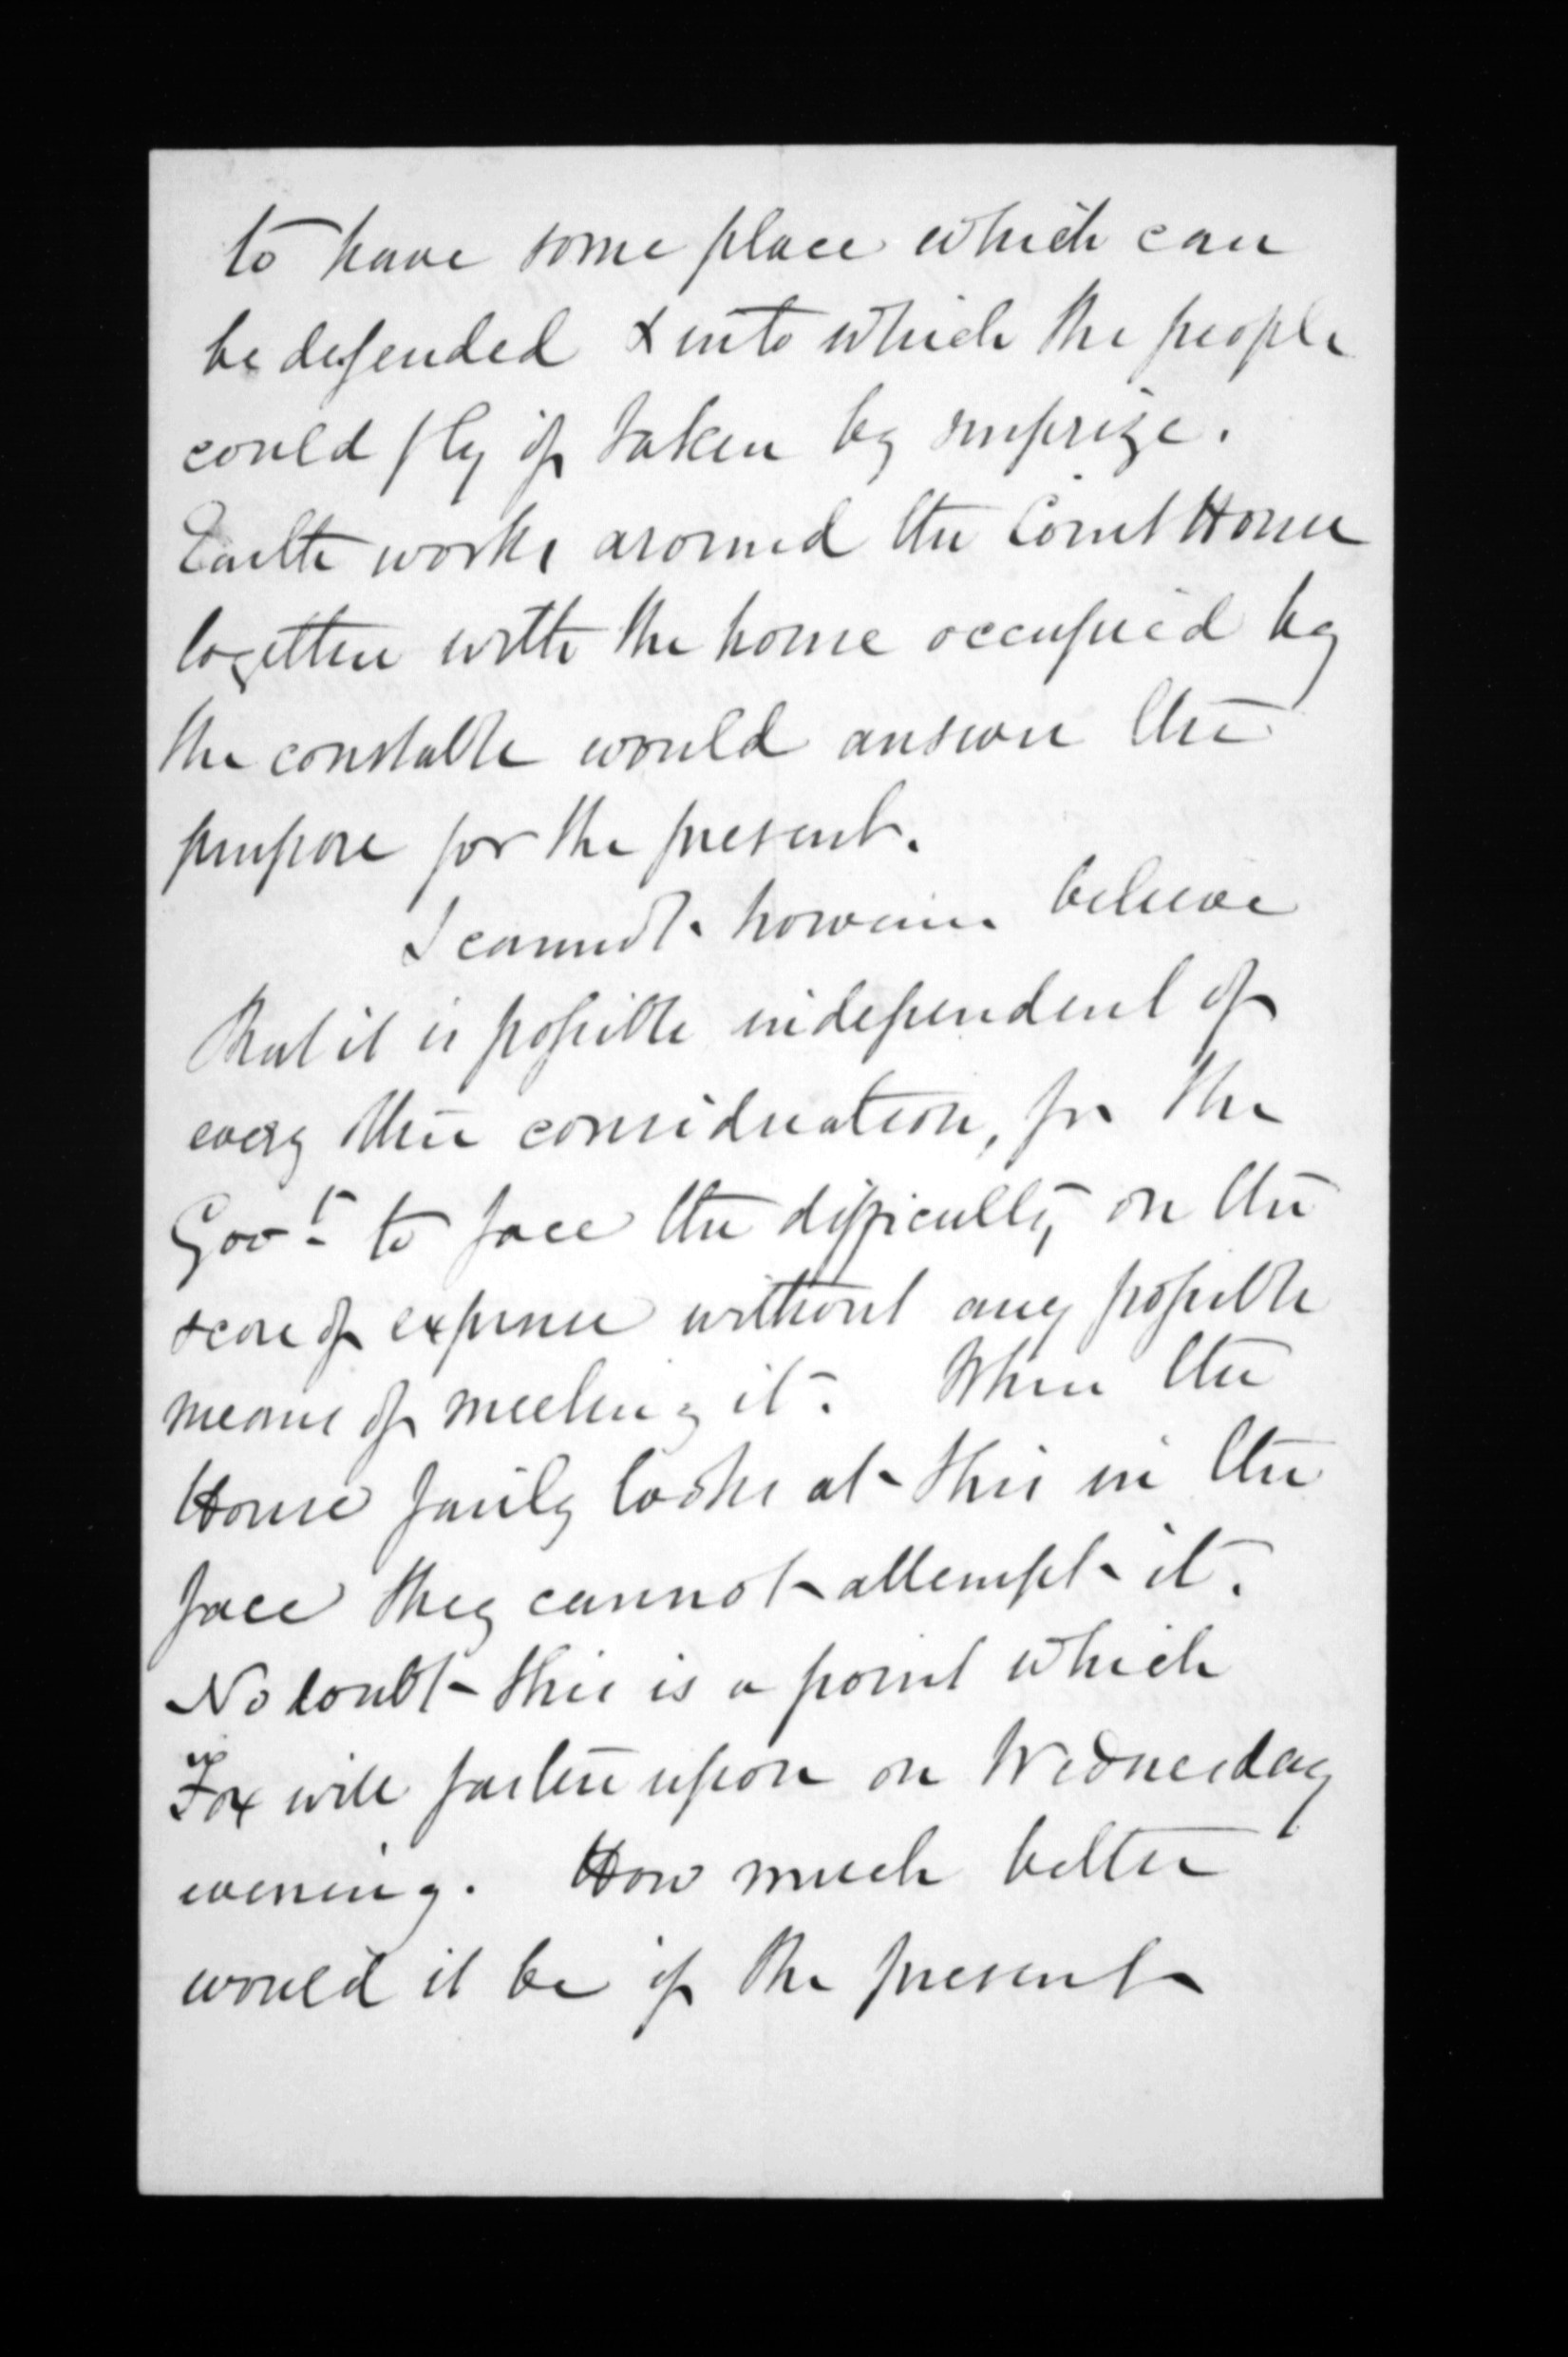 to have some place which can
be defended & into which the people
could fly if taken by surprize.
Earth works around the Court House
together with the house occupied by
the constable would answer the
purpose for the present.
I cannot however believe
that it is possible independent of
every other consideration, for the
Govt to face the difficulty on the
score of expense without any possible
means of meeting it. When the
House fairly looks at this in the
face they cannot attempt it.
No doubt this is a point which
Fox will fasten upon on Wednesday
evening. How much better
would it be if the present